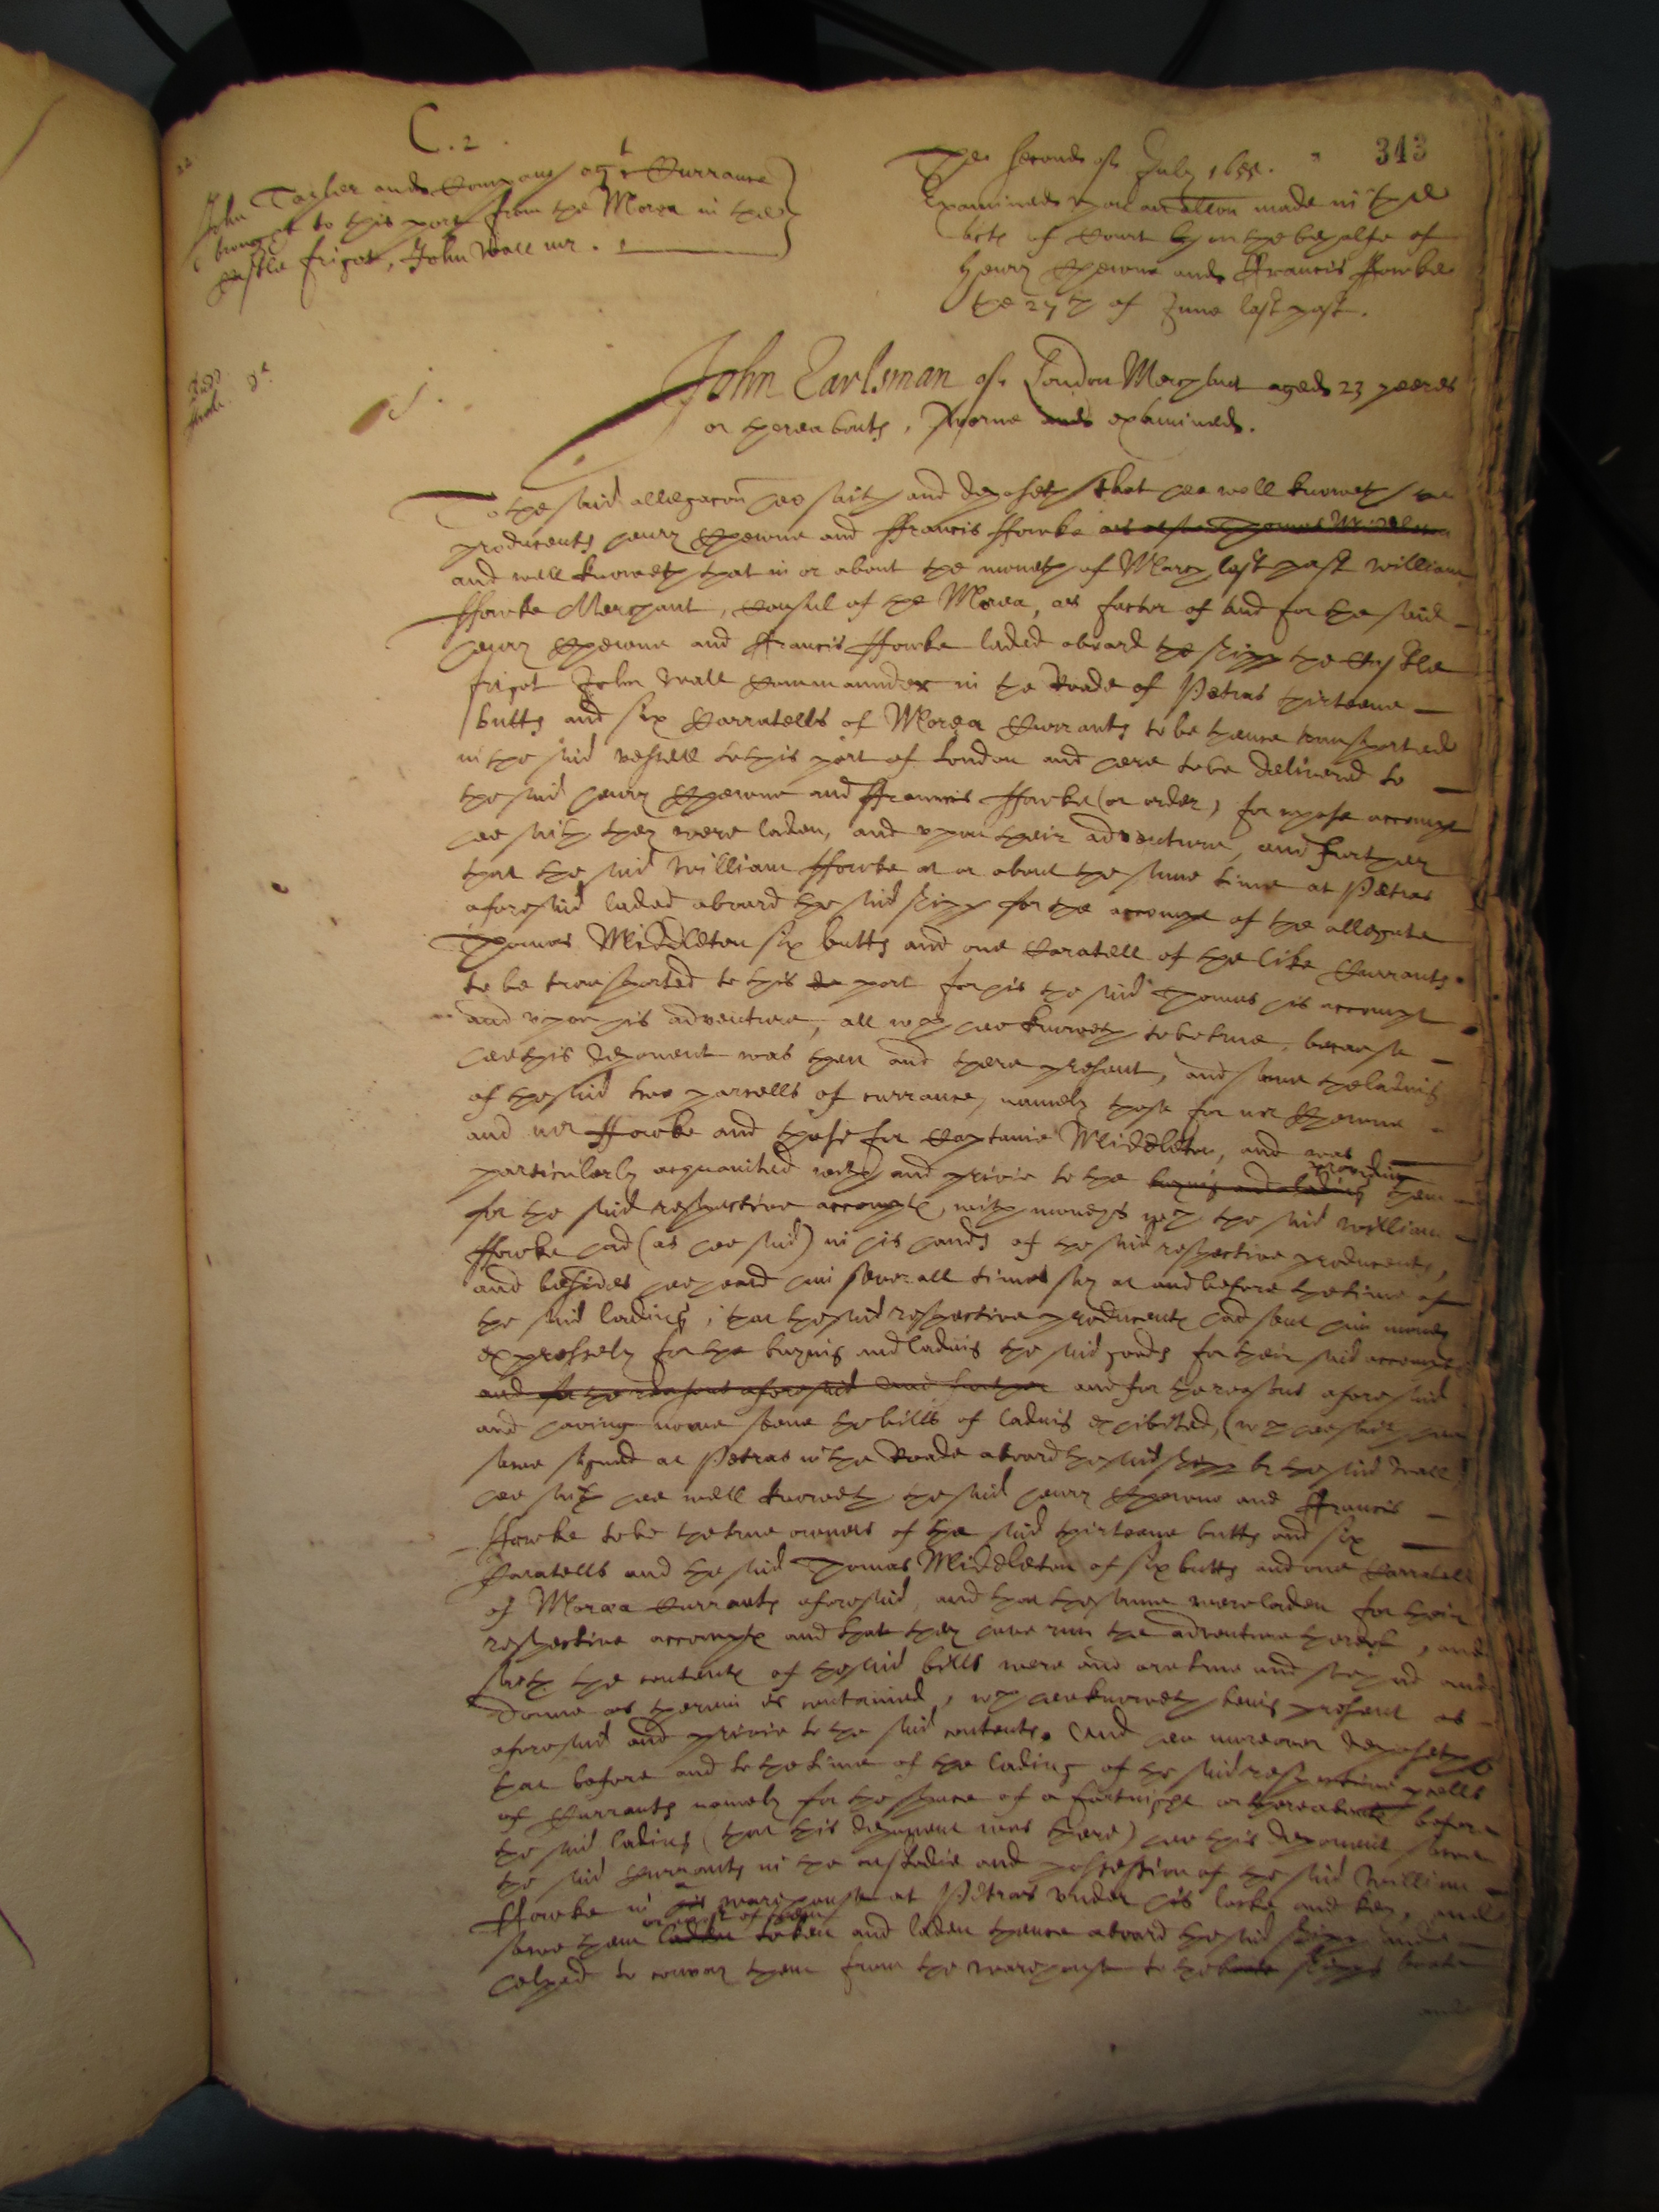 C. 2.
343
The second of July 1655.
Examined upon an allegation made in the
Acts of Court by in the behalfe of
Henry Sherme and Francis ffowke
the 27th of June last past.
John Tayler and Company agt Currance
brought to this port from the Morea in the
Castle frigot, John Wall mr.
1.
John Earlsman of London Merchant aged 23 yeeres
or thereabouts, sworne and examined.
To the said allegacon hee saith and deposeth that hee well knoweth the
producents henry and ffrancis ffowke as also Thomas Middleton
and well knoweth that in or about the moneth of March last past William
ffowke Merchant, Consul of the Morea, as factor of and for the said
henry and ffrancis ffowke laded aboard the shipp the Castle
frigot John Wall Commaunder in the Roade of Petras thirteene
butts and six Carratells of Morea Currants to be thence transported
in the said vessell to this port of London and here to be delivered to
the said henry and ffrancis ffowke (or order) for whose accompt
hee saith they were laden, and upon their adventure, and further
that the said William ffowke at or about the same time at Petras
aforesaid laded aboard the said shipp for the accompt of the allegate
Thomas Middleton six butts and one Caratell of the like Currants
to be transported to this port for his the said Thomas his accompt
and upon his adventure, all wch hee knoweth to be true, because
hee this deponent was then and there present, and sawe the lading
of the said two parcells of currance, namely those for mr
and mr ffowke and those for Captaine Middleton, and was
particularly acquainted with and privie to the buying and lading providing them
for the said respective accompts, with moneys wch the said William
ffowke had (as hee said) in his hands of the said respective producents,
and besides hee heard him severall times say at and before the time of
the said lading, that the said respective producents had sent him money
expressely for the buying and lading the said goods for their said accompts
and for the reasons aforesaid and further and for the reasons aforesaid
and having nowe seene the bills of lading exhibited, (wch hee saith hee
sawe signed at Petras in the Roade aboard the said shipp by the said Wall)
hee saith hee well knoweth the said henry and ffrancis
ffowke to be the true owners of the said thirteene butts and six
Caratells and the said Thomas Middleton of six butts and one Carratell
of Morea Currants aforesaid, and that the same were laden for their
respective accompts and that they have run the adventure thereof, and
saith the contents of the said bills were and are true and soe had and
donne as therein is contained, wch hee knoweth being present as
aforesaid and privie to the said contents. And hee moreover deposeth
that before and to the time of the lading of the said respective pcells
of Currants namely for the space of a fortnight or thereabouts before
the said lading (that this deponent was there) hee this deponent sawe
the said Currants in the custodie and possession of the said William
ffowke in his warehouse at Petras under his locke and key, and
sawe them laden or most of them taken and laden thence aboard the said shipp and
helped to convey them from the warehouse to the boate shipps boate
and